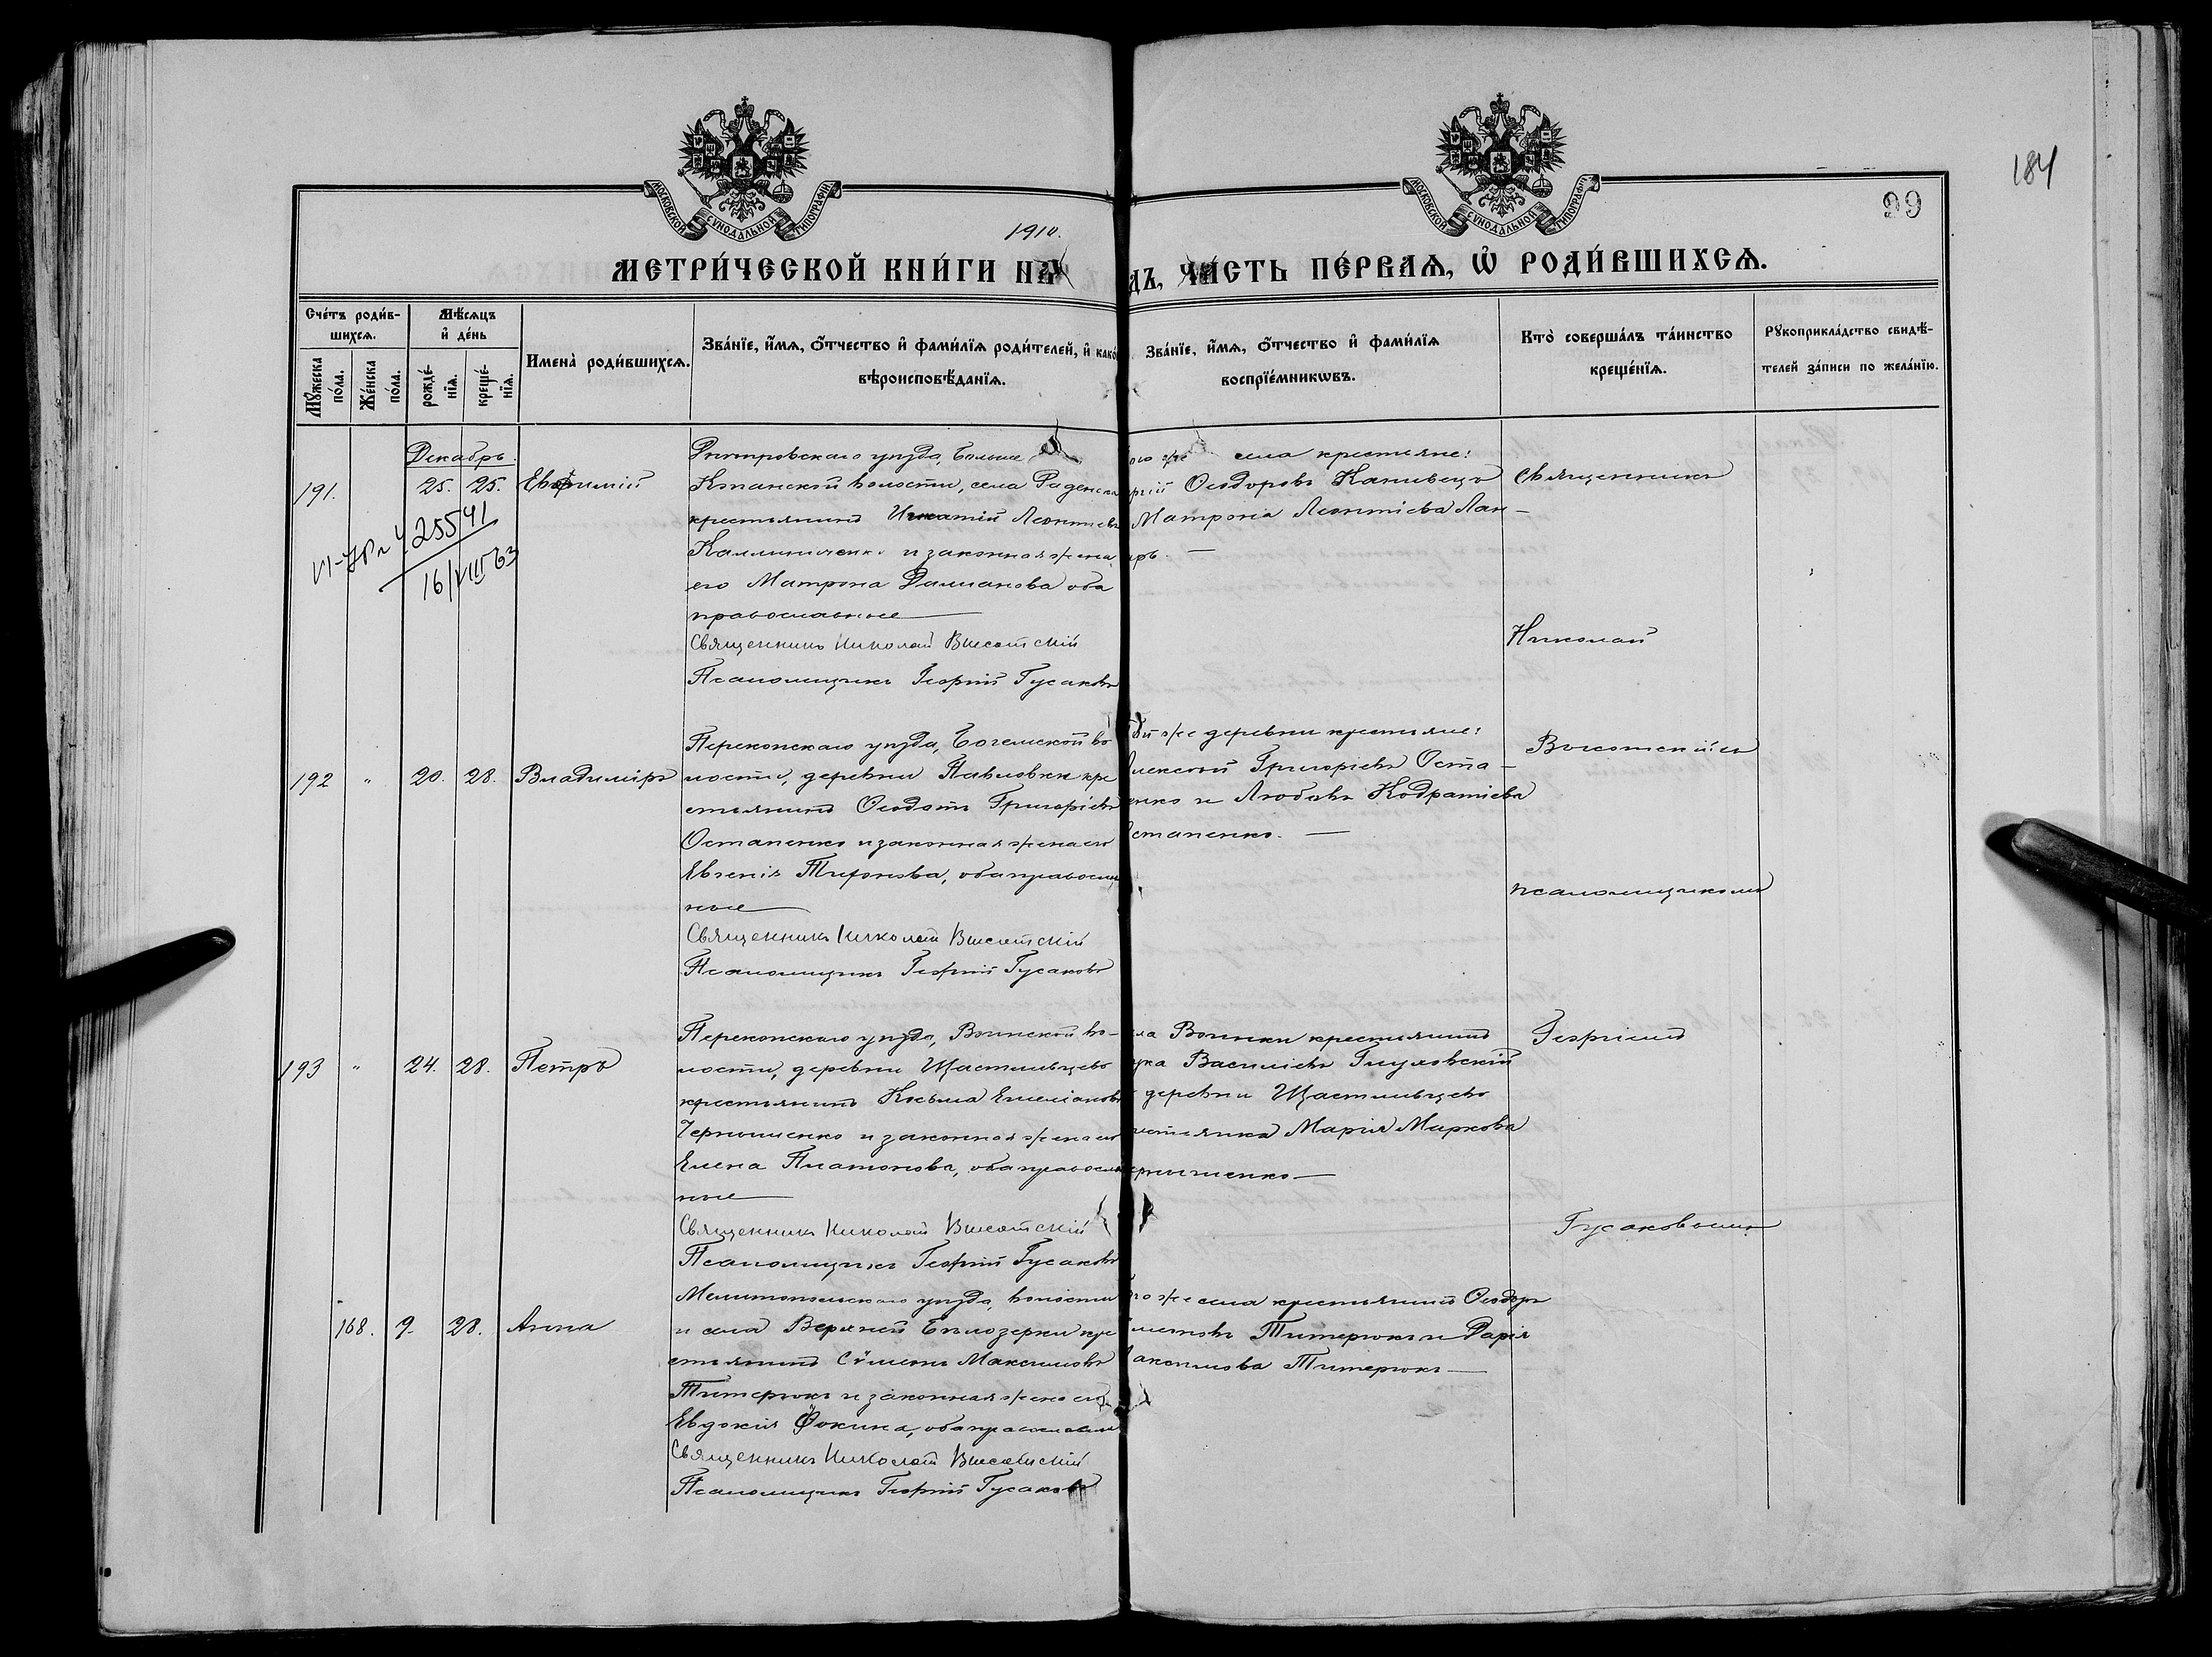 184
99
МОСКОВСКОЙ СѴНОДАЛЬНОЙ ТИПОГРАФІИ
МОСКОВСКОЙ СѴНОДАЛЬНОЙ ТИПОГРАФІИ
1910.
МЕТРИ́ЧЕСКОЙ КНИ́ГИ НА
ДЪ, ЧА́СТЬ ПЕ́РВАѦ, Ѽ РОДИ́ВШИХСѦ.
Сче́тъ роди́в-
шихсѧ.
Мꙋ́жеска по́ла.
Же́нска по́ла.
Мѣ́сѧцъ
и҆ де́нь
рожде́-
нїѧ.
креще́-
нїѧ.
Имена̀ роди́вшихсѧ.
Зва́нїе, и҆́мѧ, ѻ҆́тчество и҆ фами́лїѧ роди́телей, и҆ како́
вѣроисповѣ́данїѧ.
Зва́нїе, и҆́мѧ, ѻ҆́тчество и҆ фами́лїѧ
воспрїе́мникѡвъ.
Кто̀ соверша́лъ та́инство
креще́нїѧ.
Рꙋкоприкла́дство свидѣ́-
телей за́писи по жела́нїю.
Декабрь.
191.
25. 25.
Евфимій
425541
16/VIII 63
Днѣпровскаго уѣзда, Больше
Копанской волости, села Раденска
крестьянинъ Игнатій Леонтьевъ
Калиниченко и законная жена
его Матрона Даміанова оба
православные
Священникъ Николай Высотскій
Псаломщикъ Георгій Гусаковъ
ого же села крестьяне:
ргій Ѳеодоровъ Канивецъ
Матрона Леонтіева Лан-
аръ. —
Священникъ
Николай
Высотскій съ
псаломщикомъ
Георгіемъ
Гусаковымъ
192 " 20. 28.
Владиміръ
Перекопскаго уѣзда, Богемской во
лости, деревни Павловки кре
стьянинъ Ѳеодотъ Григорьевъ
Остапенко и законная жена его
Евгенія Тифонова, оба православ
ные
Священникъ Николай Высотскій
Псаломщикъ Георгій Гусаковъ
той же деревни крестьяне:
Алексѣй Григорьевъ Оста-
енко и Любовь Кодратіева
Остапенко. —
193 " 24. 28.
Петръ
Перекопскаго уѣзда, Воинской во-
лости, деревни Щастливцево
крестьянинъ Косьма Емеліановъ
Чернышенко и законная жена его
Елена Платонова, оба православ
ные
Священникъ Николай Высотскій
Псаломщикъ Георгій Гусаковъ
ла Воинки крестьянинъ
ука Васильевъ
деревни Щастливцево
рестьянка Марія Маркова
ернышенко —
168. 9. 28.
Анна
Мелитопольскаго уѣзда, волости
и села Верхней Бѣлозерки кре
стьянинъ Сѵмеонъ Максимовъ
Титерюкъ и законная жена его
Евдокія Ѳокина, оба православн
Священникъ Николай Высотскій
Псаломщикъ Георгій Гусаковъ
го же села крестьянинъ Ѳеодоръ
Титерюкъ и Дарія
аксимова Титерюкъ —